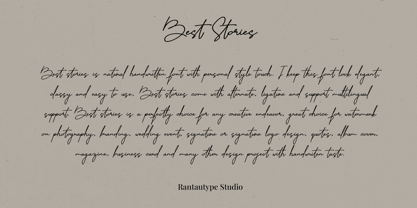 Best Stories
Best stories is natural handwritten font with personal style touch. I keep this font look elegant,
classy and easy to use. Best Stories come with alternate, ligature and support multilingual
support. Best Stories is a perfectly choice for any creative endeavor, great choice for watermark
on photography, branding, wedding event, signature or signature logo design, quotes, album cover,
magazine, business card and many other design project with handwritten taste.
Rantautype Studio